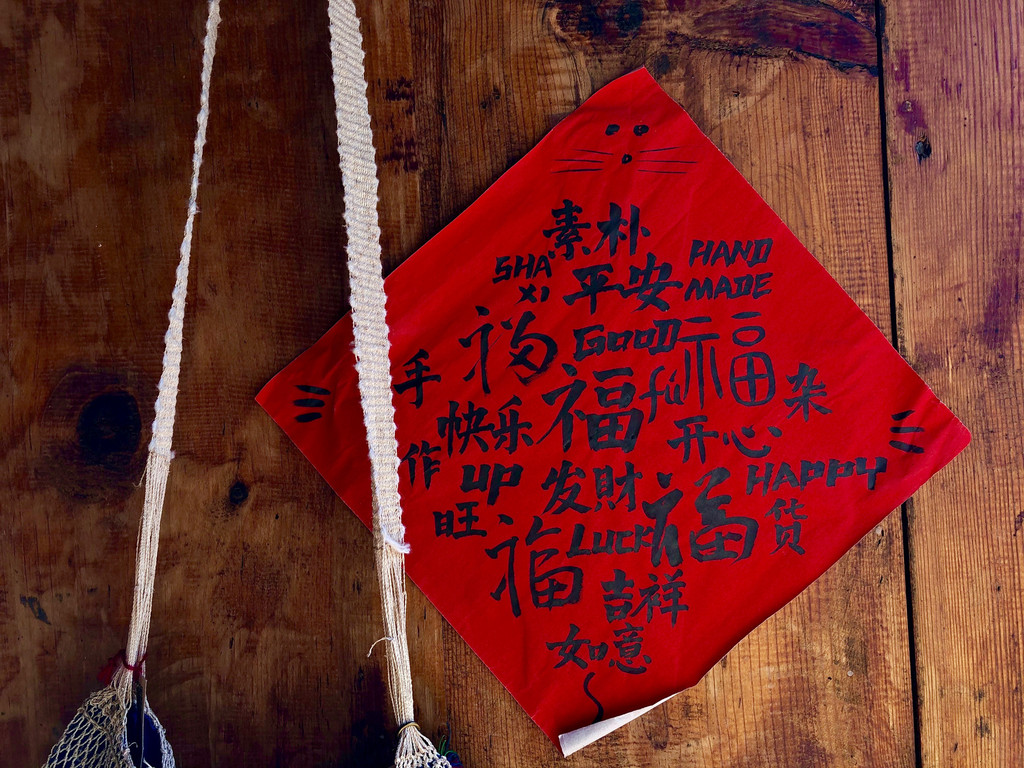 素朴
SHA XI
平安
HAND MADE
福
GOOD
福
手作
快乐
福
fu
杂货
开心
UP
旺
发财
HAPPY
福
Luck
福
吉祥
如意